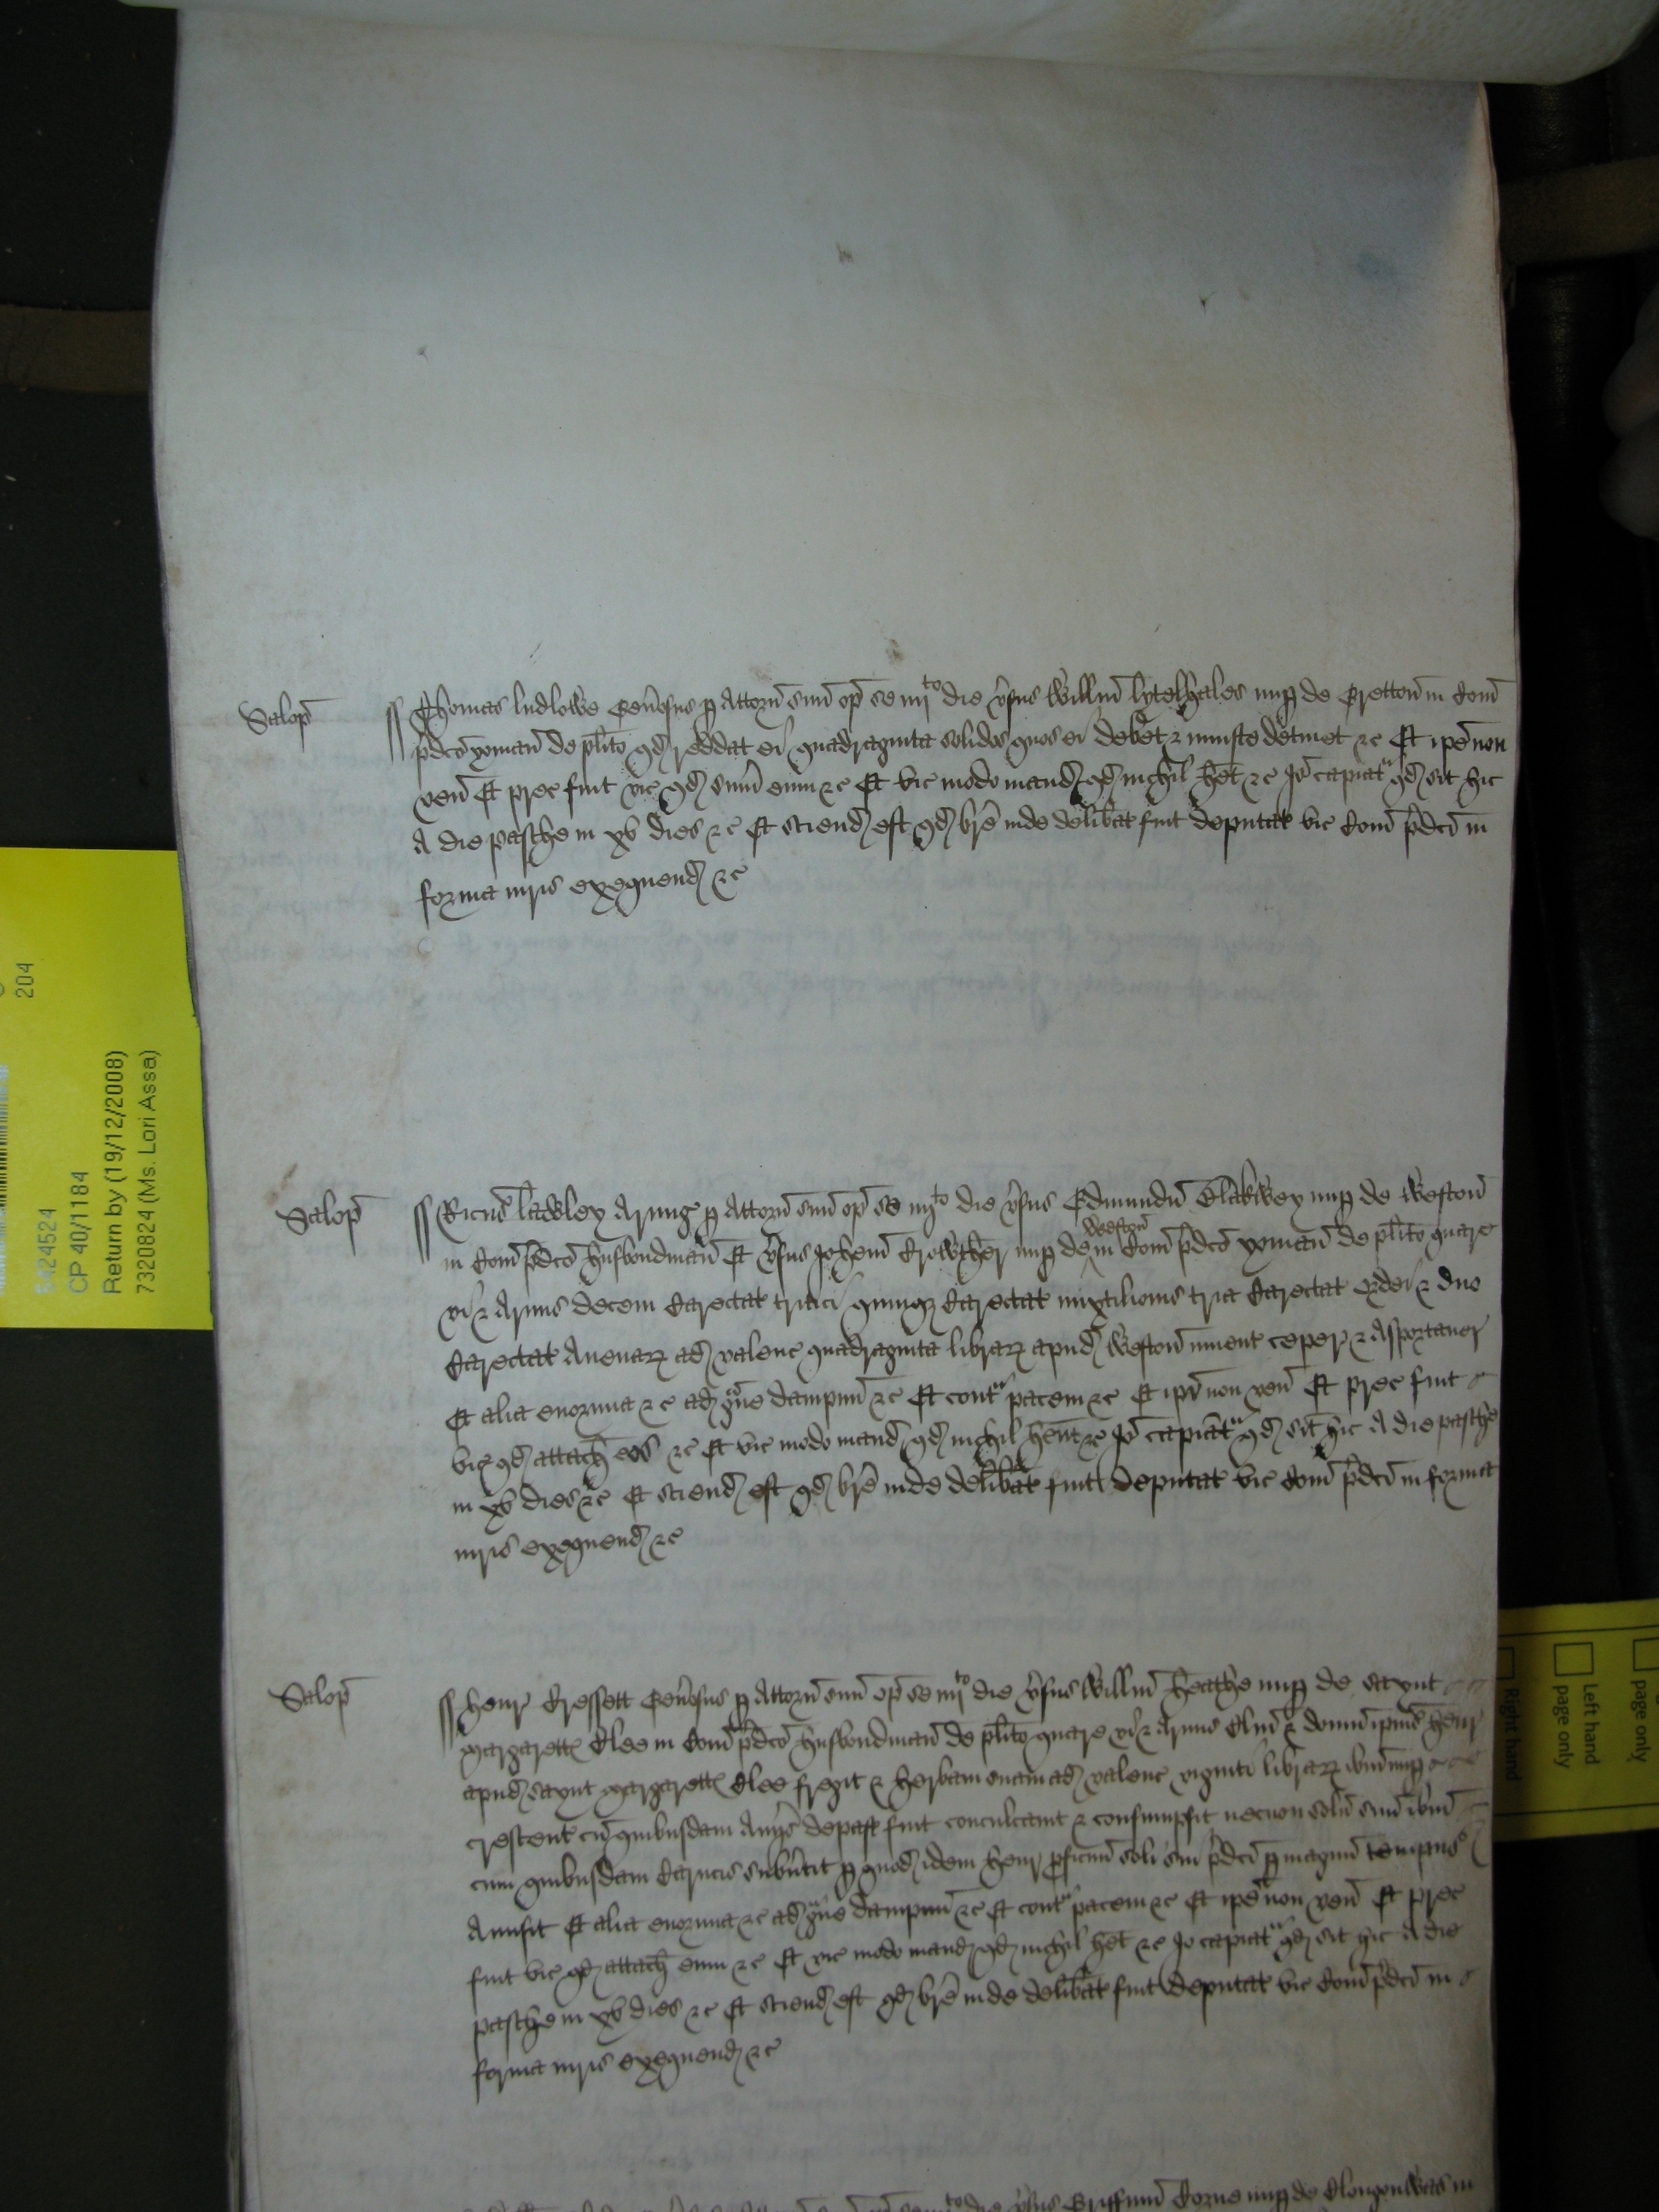 Salop̄ Thomas ludlowe Gen̄osus p Attorn̄ suū op̄ se iiijto die v̄sus Willm̄ lytelhales nup de Gretton̄ in Com̄
p̄dco yoman̄ de pl̄ito qd reddat ei quadraginta solidos quos ei debet & iniuste detinet &c Et ip̄e non
ven̄ Et prec fuit vic qd sum̄ eum &c Et vic modo mand qd nichil h̄et &c Jo capiatr qd sit hic
A die pasche in xv dies &c Et sciend est qd br̄e inde delib̄at fuit deputat vic Com̄ p̄dci in
forma iuris exequend &c
Salop̄ Ricus lawley Armig p Attorn̄ suū op̄ se iiijto die v̄sus Edmundū Blakwey nup de Weston̄
in Com̄ p̄dco husbondman̄ Et v̄sus Johem̄ Crowther nup de Weston̄ in Com̄ p̄dco yoman̄ de pl̄ito quare
vi & Armis decem Carectat tritici quinqz Carectat mixtilionis tria Carectat ordei & duo
Carectat Auenarz ad valenc quadraginta librarz apud Weston̄ inuent ceper & Asportauer
Et alia enormia &c ad gue dampnū &c Et contra pacem &c Et ip̄i non ven̄ Et prec fuit
vic qd attach eos &c Et vic modo mand qd nichil h̄ent &c Jo capiantr qd sit hic A die pasche
in xv dies &c Et sciend est qd br̄e inde delib̄at fuit deputat vic Com̄ p̄dci in forma
iuris exequend &c
Salop̄ Henr Cressett Gen̄osus p Attorn̄ suū op̄ se iiijto die v̄sus Willm̄ Heathe nup de Saynt
Margarett Clee in Com̄ p̄dco husbondman̄ de pl̄ito quare vi & Armis Clm̄ & domū ip̄ius Henr
apud Saynt Margarett Clee fregit & herbam suam ad valenc viginti librarz ibm̄ nup
crescent cū quibusdam Aueriis depast fuit conculcauit & consumpsit necnon solū suū ibm̄
cum quibusdam Carucis subuertit p quod idem Henr proficuū soli sui p̄dci p magnū tempus
Amisit Et alia enormia &c ad gue dampnū &c Et contra pacem &c Et ip̄e non ven̄ Et prec
fuit vic qd attach eum &c Et vic modo mand qd nichil h̄et &c Jo capiatr qd sit hic A die
pasche in xv dies &c Et sciend est qd br̄e inde delib̄at fuit deputat vic Com̄ p̄dci in
forma iuris exequend &c
die v̄sus Griffinū Corne nup de Clongonwas in
204
5424524
CP 40/1184
Return by (19/12/2008)
7320824 (Ms. Lori Assa)
Right hand
Left hand
page only
page only